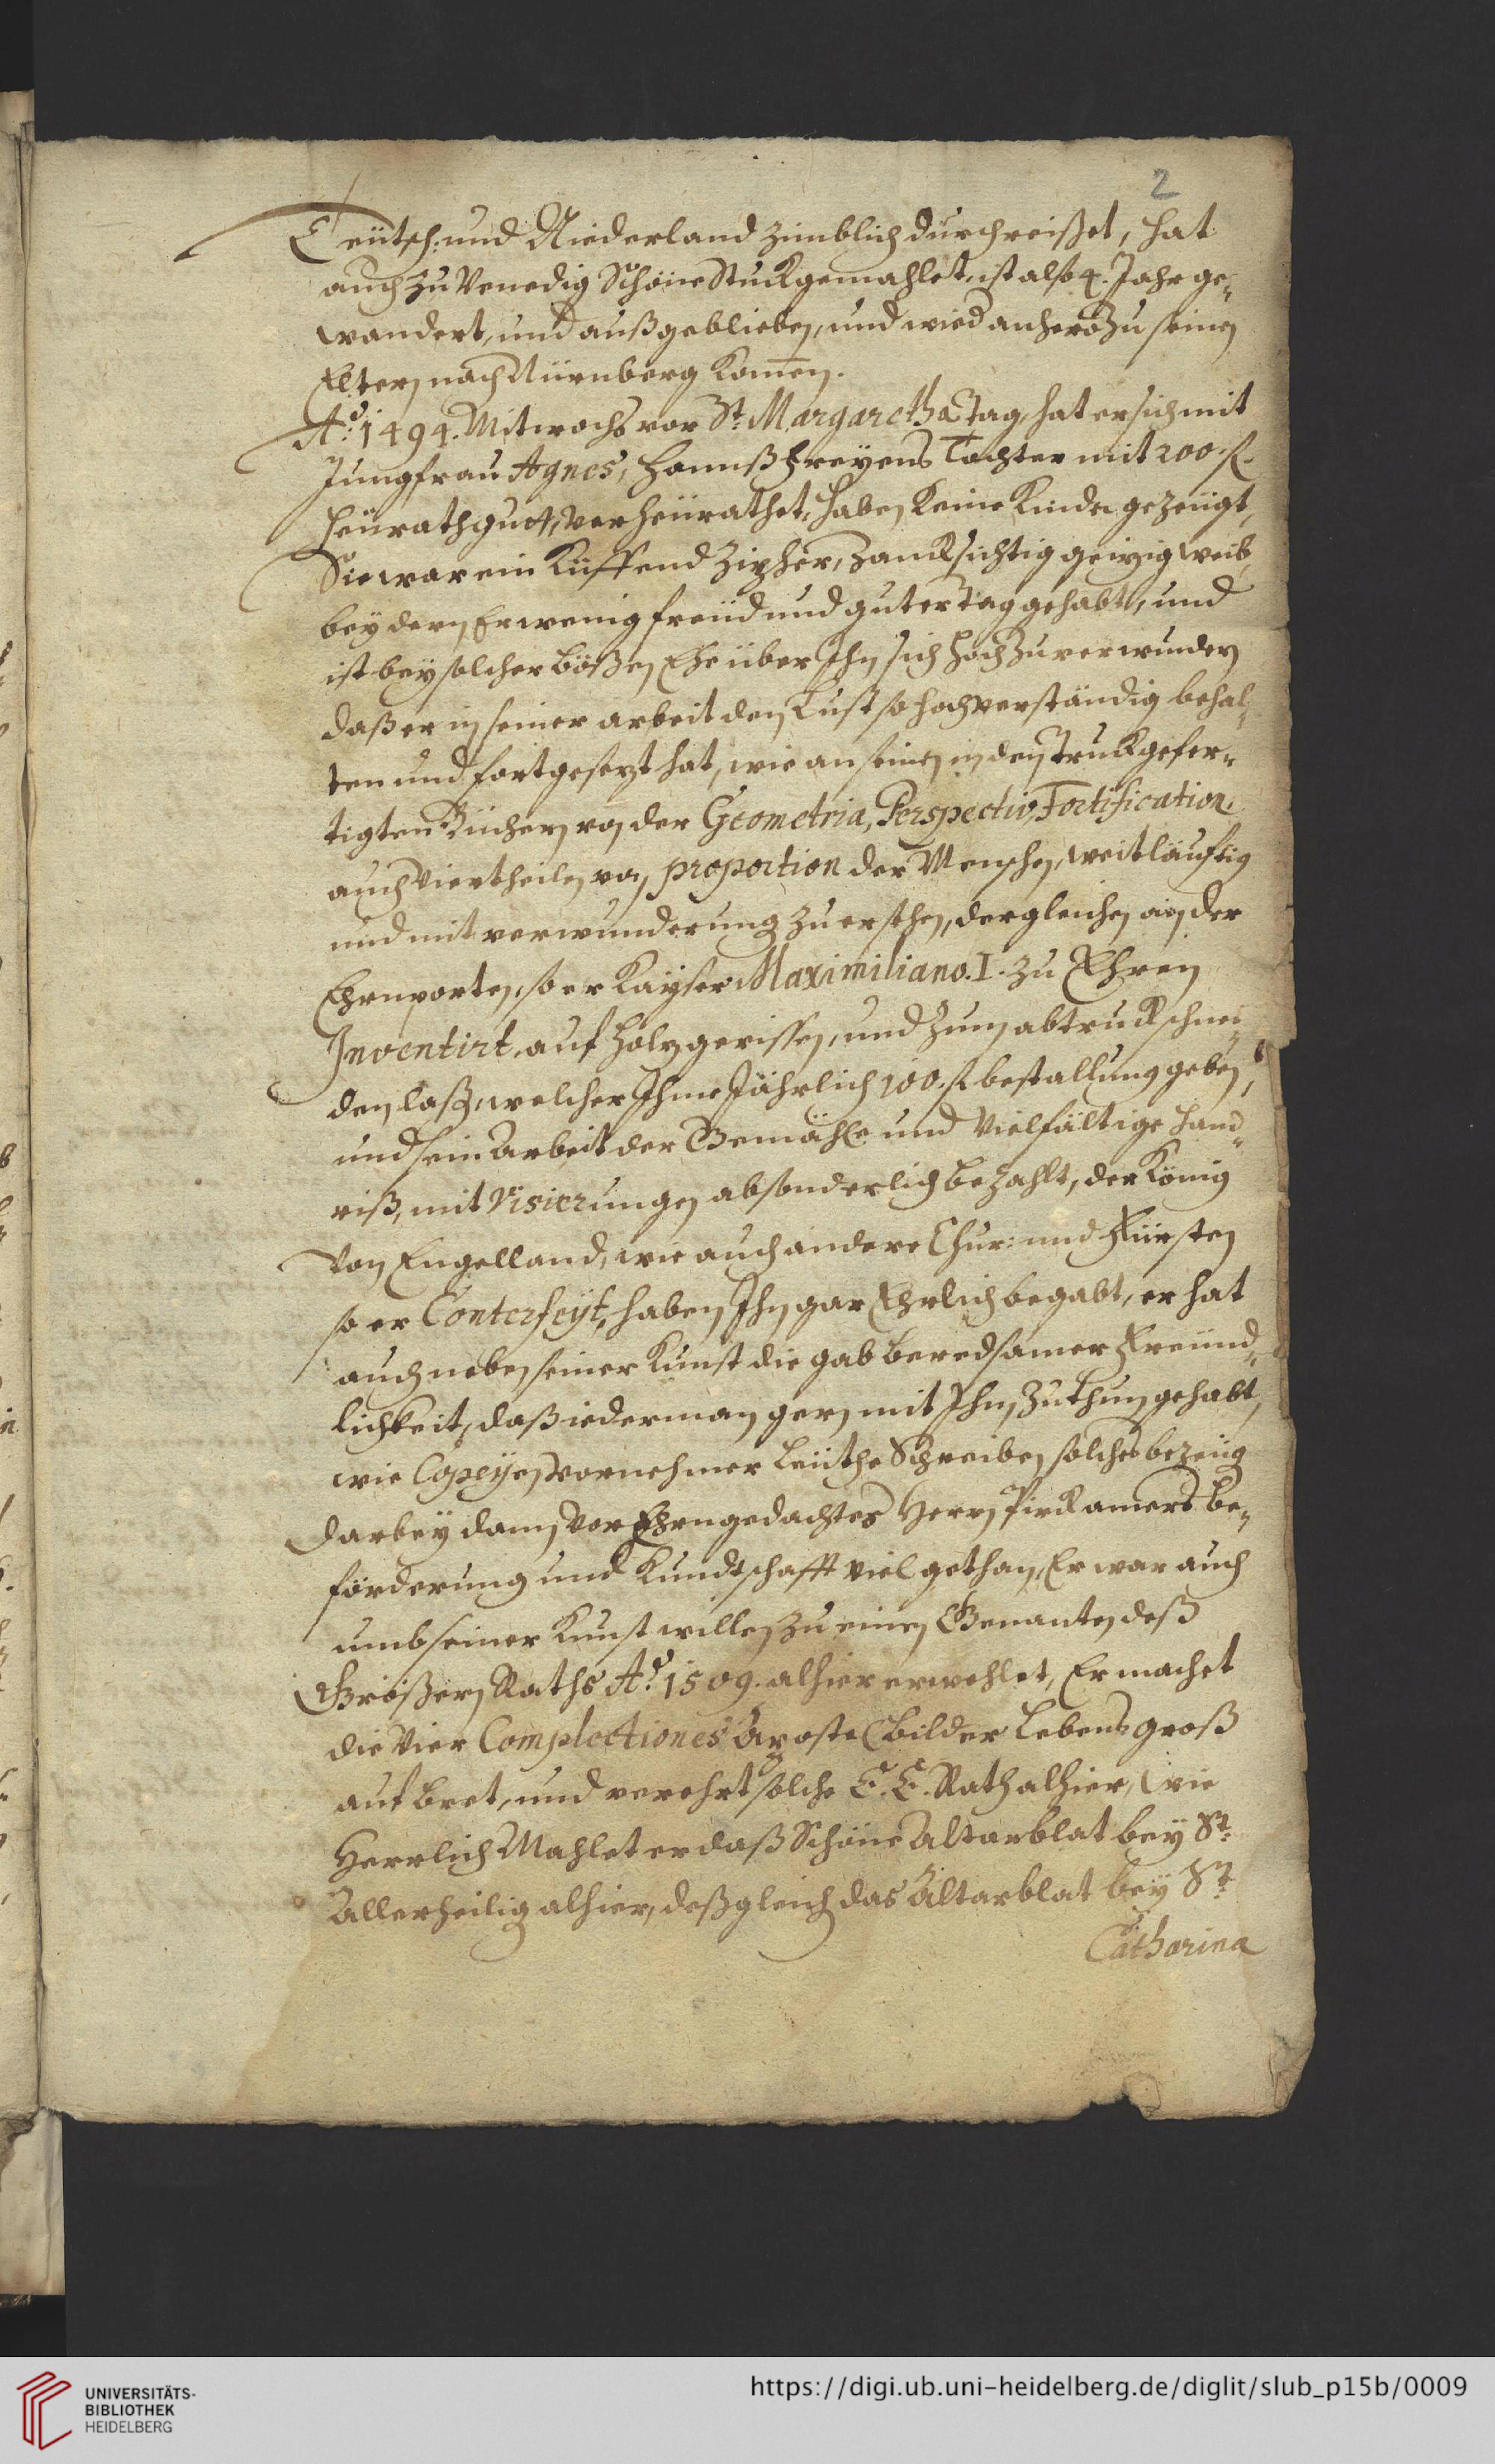 2
Teütsch: und Niederland zimblich durchreißet, hat
auch zu Venedig Schöne Stuck gemahlet, ist also 4. Jahr ge„
wandert, und außgeblieben, und wied anhero zu seinen
Eltern nach Nürnberg kom̄en.
Aō: 1494. Mitwochs vor St: Margaretha Tag, hat er sich mit
Jungfrau Agnes, Hannß Freyens Tochter mit 200. fl.
heürathgutt, verheürathet, haben keine Kinder gezeügt,
Sie war ein Küffend zanksichtig geizig weib,
bey dern Er wenig freüd und guter Tag gehabt, und
ist bey solcher bößen Ehe über Ihn sich hoch zuverwundern
daß er in seiner arbeit den Lust so hochverständig behal„
ten und fortgesezt hat, wie an seinen in den Truck gefer„
tigten Büchern von der Geometria, Perspectiv, Fortification,
auch Viertheilen von proportion der Menschen, weitläuftig
und mit verwunderung zu ersehen, dergleichen an der
Ehrnporten, so er Kayser Maximiliano. I. zu Ehren
Inventirt, auf holz gerissen, und zum abtruck schnei„
den laßen, welcher Ihme Jährlich 100. fl. bestallung geben,
und sein Arbeit der Gemähle und Vielfältige hand„
riß, mit Visierungen absonderlich bezahlt, der König
von Engelland, wie auch andere Chur: und Fürsten
so er Conterfeyt, haben Ihn gar Ehrlich begabt, er hat
auch neben seiner Kunst die gab beredsamer Freünd„
lichkeit, daß iederman gern mit Ihm zu thun gehabt,
wie Copeyen vornehmer Leüthe Schreiben solches bezeüg
darbey dann vor Ehrngedachtes Herrn Pirckamers be„
förderung und Kundtschafft viel gethan, Er war auch
umb seiner Kunst willen zu einen Genanten deß
Größern Raths Aō: 1509. alhier erwehlet, Er machet
die Vier Complectiones Apostelbilder Lebens groß
auf bret, und verehrt solche E. E. Rath alhier, wie
Herrlich Mahlet er daß Schöne Altarblat bey St:
Allerheilig alhier, deßgleich das Altarblat bey St:
Catharina
UNIVERSITÄTS-
BIBLIOTHEK
HEIDELBERG
https://digi.ub.uni-heidelberg.de/diglit/slub_p15b/0009